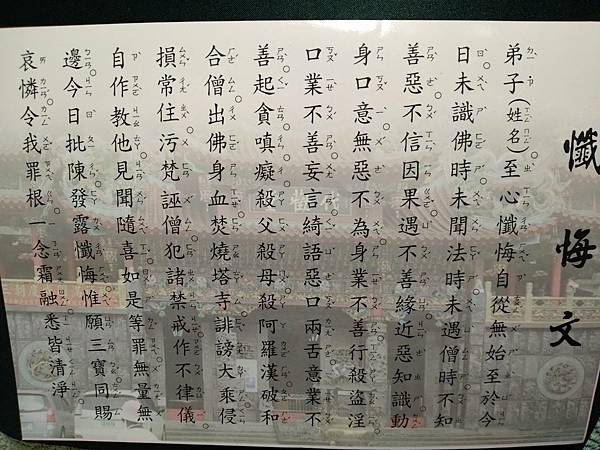 懺悔文
弟子(姓名)至心懺悔自從無始至於今
日未識佛時未聞法時未遇僧時不知
善惡不信因果。遇不善緣近惡知識動
身口意無惡不為。身業不善行殺盜淫。
口業不善妄言綺語惡口兩舌。意業不
善起貪嗔癡。殺父殺母殺阿羅漢破和
合僧出佛身血。焚燒塔寺誹謗大乘侵
損常住污梵誣僧。犯諸禁戒作不律儀。
自作教他見聞隨喜。如是等罪無量無
邊。今日批陳發露懺悔。惟願三寶同賜
哀憐。令我罪根一念霜融。悉皆清淨